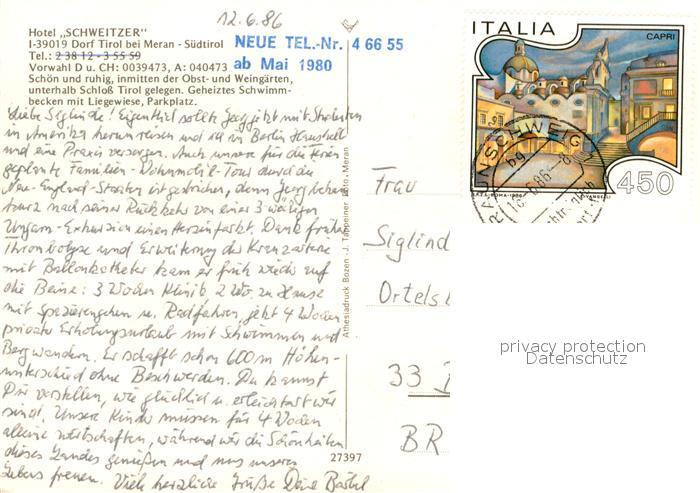 12.6.86
Hotel „SCHWEITZER"
I-39019 Dorf Tirol bei Meran - Südtirol
Tel.: 2 38 12 - 3 55 59
NEUE TEL.-Nr. 4 66 55
ab Mai 1980
Vorwahl D u. CH: 0039473, A: 040473
Schön und ruhig, inmitten der Obst- und Weingärten,
unterhalb Schloß Tirol gelegen. Geheiztes Schwimm-
becken mit Liegewiese, Parkplatz.
Liebe Siglinde! Eigentlich sollte Jerg jetzt mit Studenten
in Amerika herumreisen und ich in Berlin Haushalt
und eine Praxis versorgen. Auch unsere für die Ferien
geplante Familien-Wohnmobil-Tour durch die
Neu-England-Staaten ist gestrichen, denn Jerg bekam
kurz nach seiner Rückkehr von einer 3 wöchigen
Ungarn-Exkursion einen Herzinfarkt. Dank früher
Thrombolyse und Erweiterung der Kranzarterie
mit Ballonkatheter kam er früh wieder auf
die Beine: 3 Wochen Klinik, 2 Wo. zu Hause
mit Spazierengehen u. Radfahren, jetzt 4 Wochen
privater Erholungsurlaub mit Schwimmen und
Bergwandern. Er schafft schon 600 m Höhen-
unterschied ohne Beschwerden. Du kannst
Dir vorstellen, wie glücklich u. erleichtert wir
sind. Unsere Kinder müssen für 4 Wochen
alleine wirtschaften, während wir die Schönheiten
dieses Landes genießen und uns unseres
Lebens freuen. Viele herzliche Grüße Deine Bärbel
Athesiadruck Bozen - J. Tappeiner Foto, Meran
27397
ITALIA
CAPRI
450
Frau
Siglind
Ortels
33
BR
privacy protection
Datenschutz